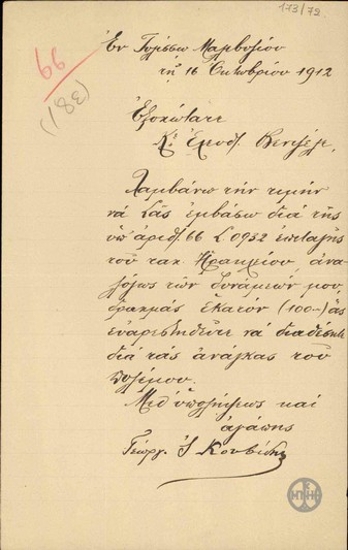 173/72
66
(381)
Ἐν Τυλίσσῳ Μαλεβυζίου
τῇ 16 Ὀκτωβρίου 1912
Ἐξοχώτατε
Κε Ἐλευθ. Βενιζέλε,
Λαμβάνω τὴν τιμὴν
νὰ Σᾶς ἐμβάσω διὰ τῆς
ὑπ' ἀριθ. 66 L 0932 ἐπιταγῆς
τοῦ ταχ. Ἡρακλείου, ἀνα-
λόγως τῶν δυνάμεών μου,
δραχμὰς ἑκατὸν (100-) ἃς
εὐαρεστηθῆτε νὰ διαθέσητε
διὰ τὰς ἀνάγκας τοῦ
πολέμου.
Μεθ' ὑπολήψεως καὶ
ἀγάπης
Γεώργ. Ἰ Κουβίδης